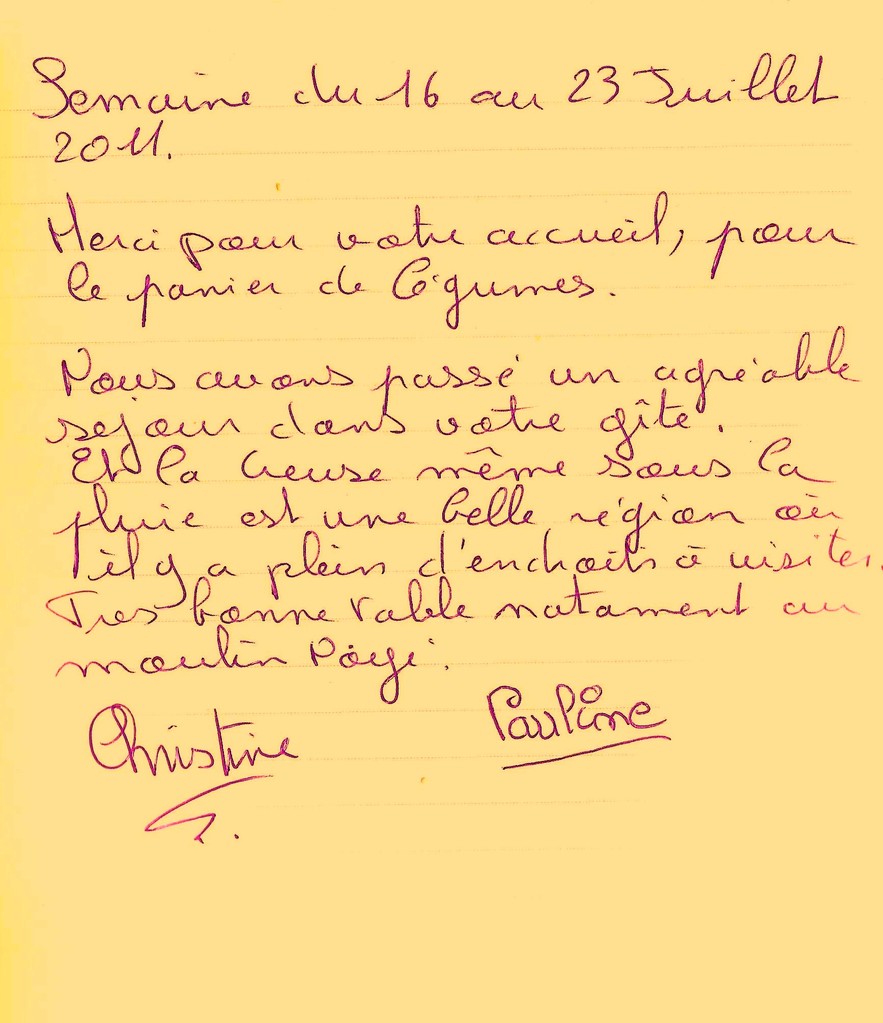 Semaine du 16 au 23 Juillet
2011.
Merci pour votre accueil, pour
le panier de légumes.
Nous avons passé un agréable
séjour dans votre gîte.
Et la Creuse même sous la
pluie est une belle région où
il y a plein d'endroits à visiter.
Tres bonne table notament au
moulin
Christine Pauline